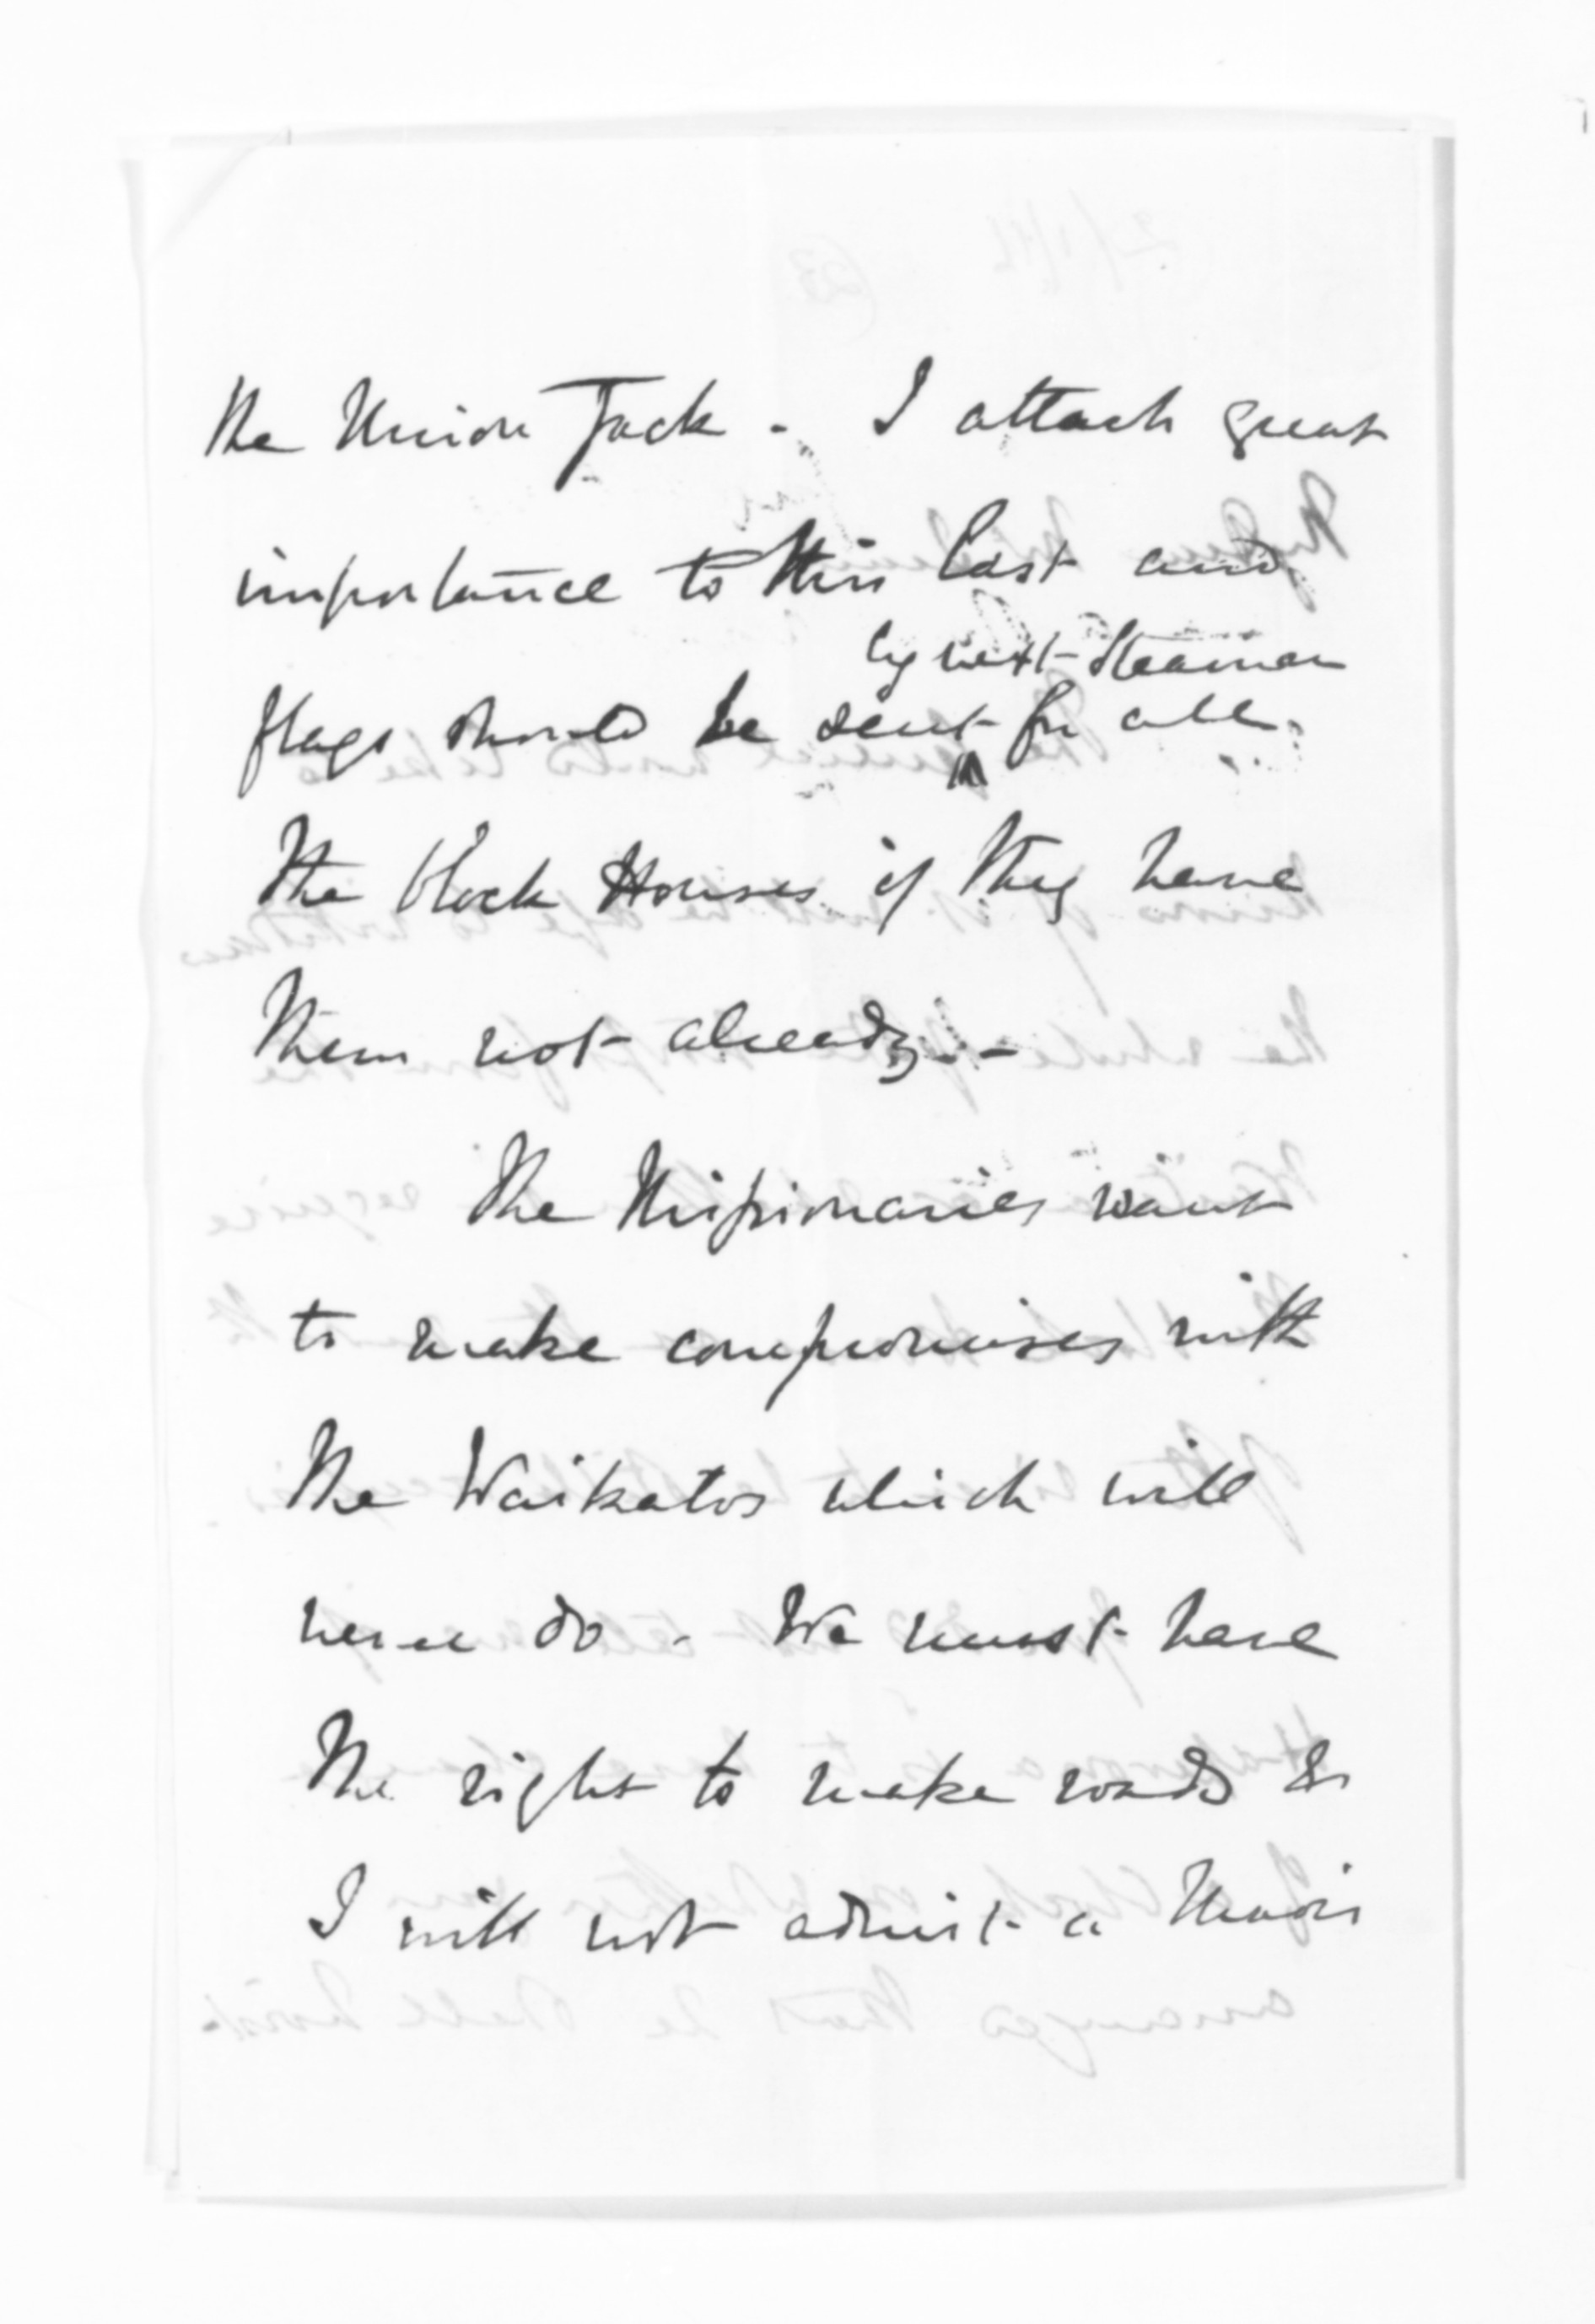 the Union Jack - I attach great
importance to this last and
by next Steamer
flags should be sent for all
the block Houses if they have
them not already. -
The Missionaries want
to make compromises with
the Waikatos which will
never do - We must have
the right to make roads &
I will not admit a Maori